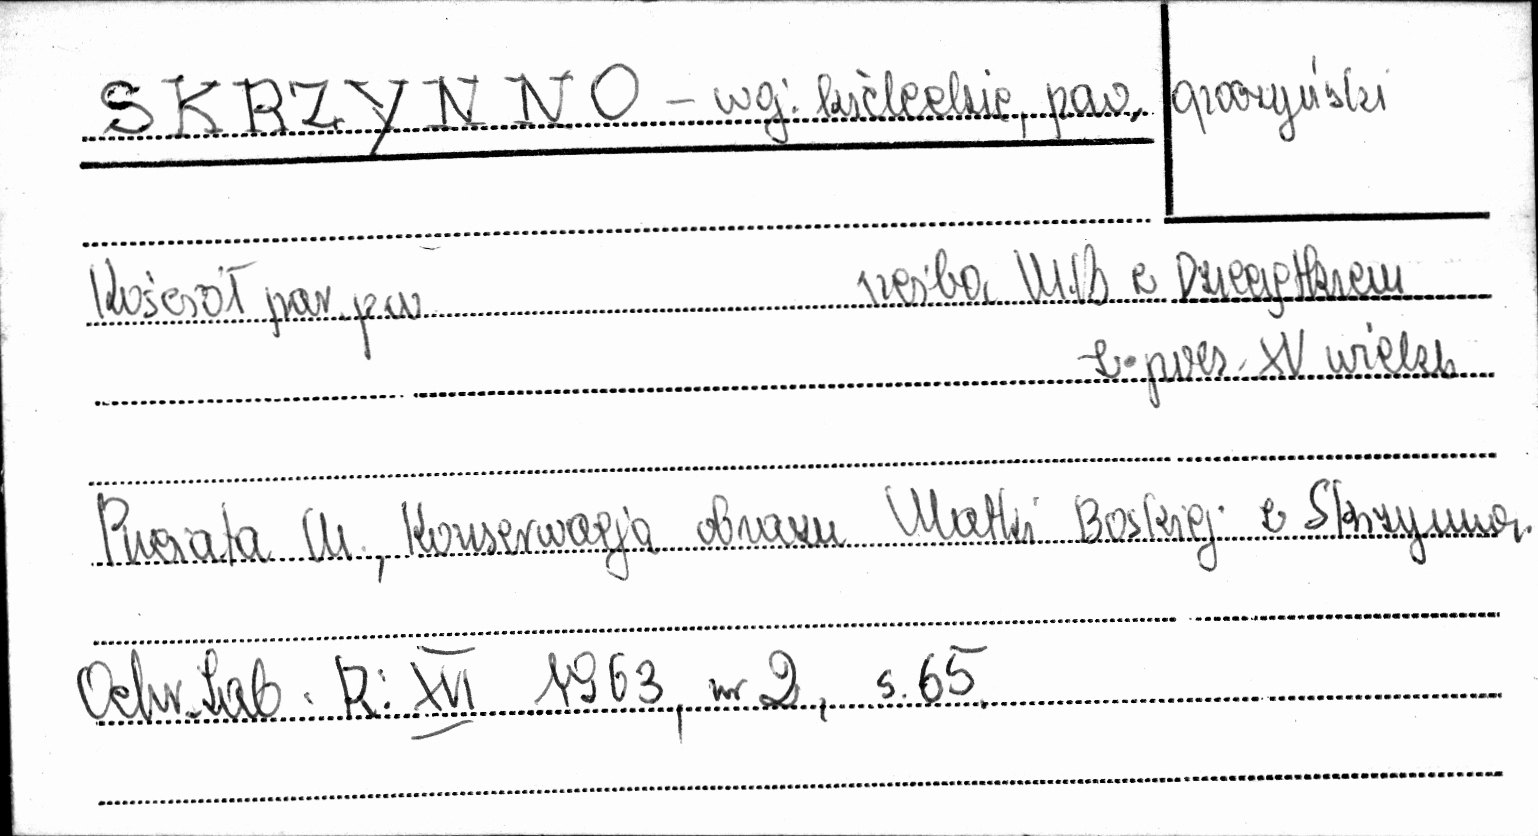 SKRZYNNO - woj. kieleckie, pow.
Kościół par. p.w. rzeźba M.B z Dzieciątkiem
z pocz. XV wieku
M., Konserwacja obrazu Matki Boskiej z Skrzynna.
Ochr. Zab. R: XVI 1963, nr 2, s. 65.